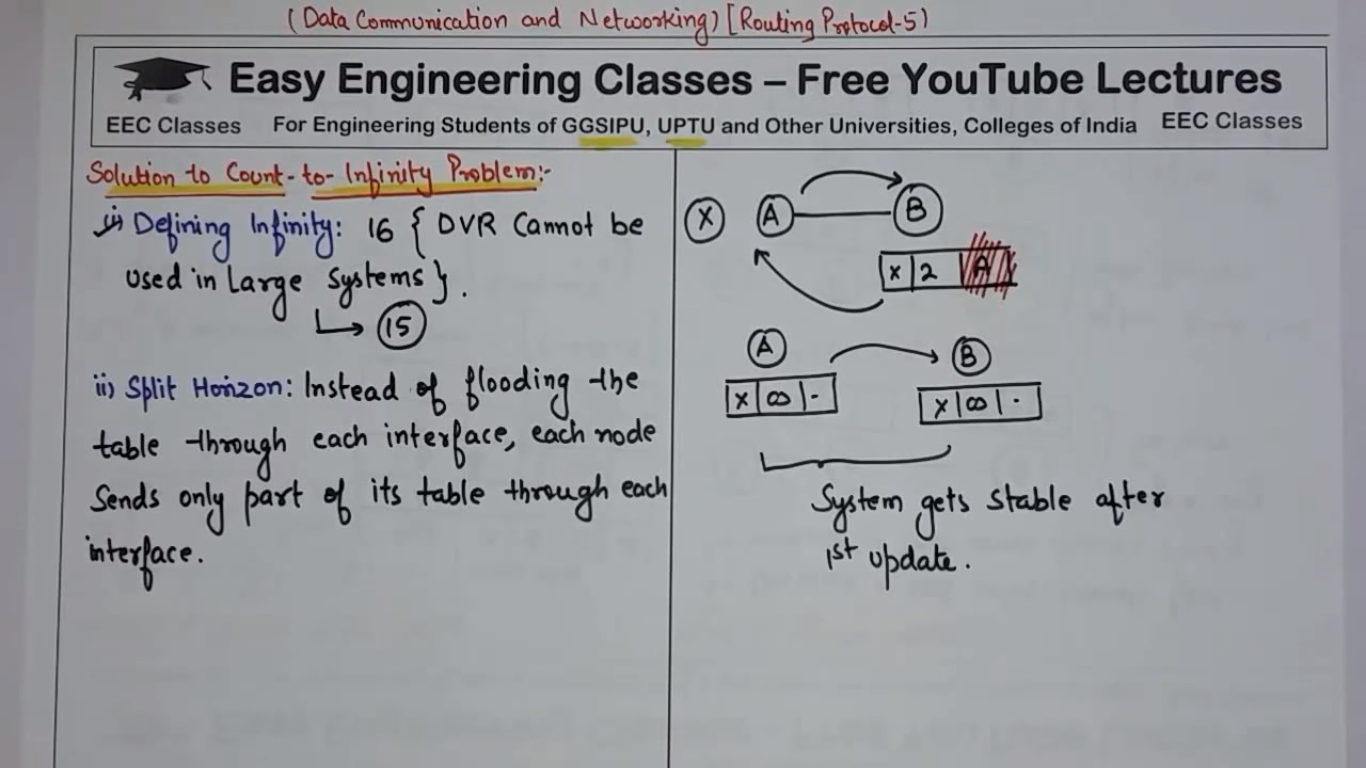 (Data Communication and Networking) [Routing Protocol-5)
Easy Engineering Classes – Free YouTube Lectures
EEC Classes For Engineering Students of GGSIPU, UPTU and Other Universities, Colleges of India EEC Classes
Solution to Count-to-Infinity Problem:-
i) Defining Infinity: 16 { DVR Cannot be
used in Large Systems}.
15
ii) Split Horizon: Instead of flooding the
table through each interface, each node
Sends only part of its table through each
interface.
X A B
X 2 A
A B
X ∞ - X ∞ ·
System gets stable after
1st update.